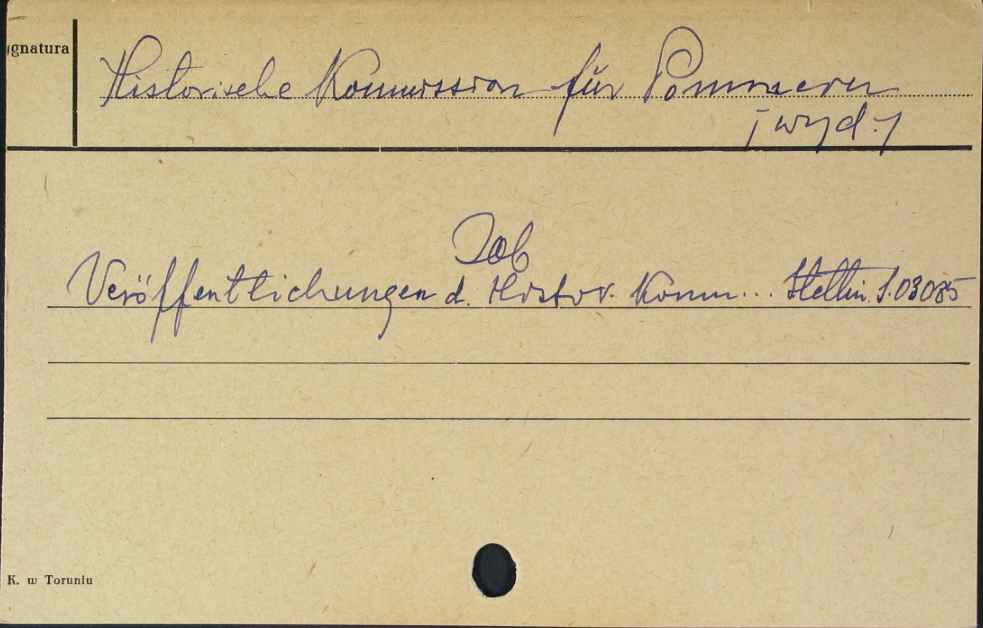 ygnatura
Historische Kommission für Pommern
[wyd.]
Zob
Veröffentlichungen d. Histor. Komm... Stettin S.03085
K. w Toruniu